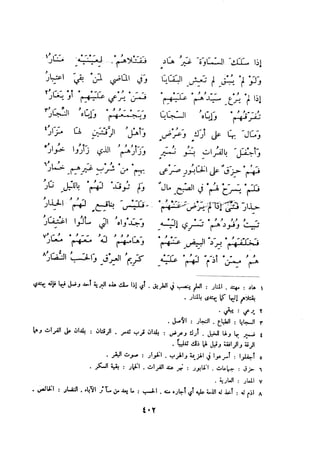 إذا سَلَكَ السَّمَاوَةَ غَيرُ هَادٍ فَقَتْلاهُمْ لِعَيْنَيْهِ مَنَارُ١
وَلَوْ لمْ يُبْقِ لم تَعِشِ البَقَايَا وَفي المَاضِي لمَنْ بَقيَ اعتِبارُ
إذا لم يُرْعِ سَيّدُهُمْ عَلَيْهِمْ فَمَنْ يُرْعي عَلَيْهِمْ أوْ يَغَارُ٢
تُفَرّقُهُمْ وَإيّاهُ السّجَايَا وَيَجْمَعُهُمْ وَإيّاهُ النِّجَارُ٣
وَمَالَ بهَا عَلى أرَكٍ وَعُرْضٍ وَأهْلُ الرَّقّتَينِ لهَا مَزَارُ٤
وَأجْفَلَ بالفُراتِ بَنُو نُمَيرٍ وَزَأرُهُمُ الذي زَأرُوا خُوَارُ٥
فَهُمْ حِزَقٌ على الخَابُورِ صَرْعَى بهِمْ منْ شُرْبِ غَيرِهِمِ خُمارُ٦
فَلَمْ يَسرَحْ لهُمْ في الصّبحِ مالٌ وَلم تُوقَدْ لَهُمْ باللّيلِ نَارُ
حِذارَ فَتًى إذا لم يَرْضَ عَنْهُمْ فَلَيْسَ بنَافِعٍ لَهُمُ الحِذارُ
تَبِيتُ وُفُودُهُمْ تَسرِي إلَيْهِ وَجَدْواهُ التي سألُوا اغْتِفَارُ
فَخَلّفَهُمْ برَدّ البِيضِ عَنهُمْ وَهَامُهُمُ لَهُ مَعَهُمْ مُعَارُ٧
هُمُ مِمّنْ أذَمّ لَهُمْ عَلَيْهِ كَريمُ العِرْقِ وَالحَسَبُ النُّضَارُ٨
١ هاد : مهتد . المنار : العلم ينصب في الطريق . أي إذا سلك هذه البرية أحد وضل فيها فإنه يهتدي
بقتلاهم إليها كما يهتدى بالمنار .
٢ يرعي : يبقي .
٣ السجايا : الطباع . النجار : الأصل .
٤ ضمير بها ولها للخيل . أرك وعرض : بلدان قرب تدمر . الرقتان : بلدان على الفرات وهما
الرقة والرافقة وقيل لهما ذلك تغليباً .
٥ أجفلوا : أسرعوا في الهزيمة والهرب . الخوار : صوت البقر .
٦ حزق : جماعات . الخابور : نهر عند الفرات . الخمار : بقية السكر .
٧ المعار : العارية .
٨ اذم له : أخذ له الذمة عليه أي أجاره منه . الحسب : ما يعد من مآثر الآباء . النضار : الخالص .
٤٠٢